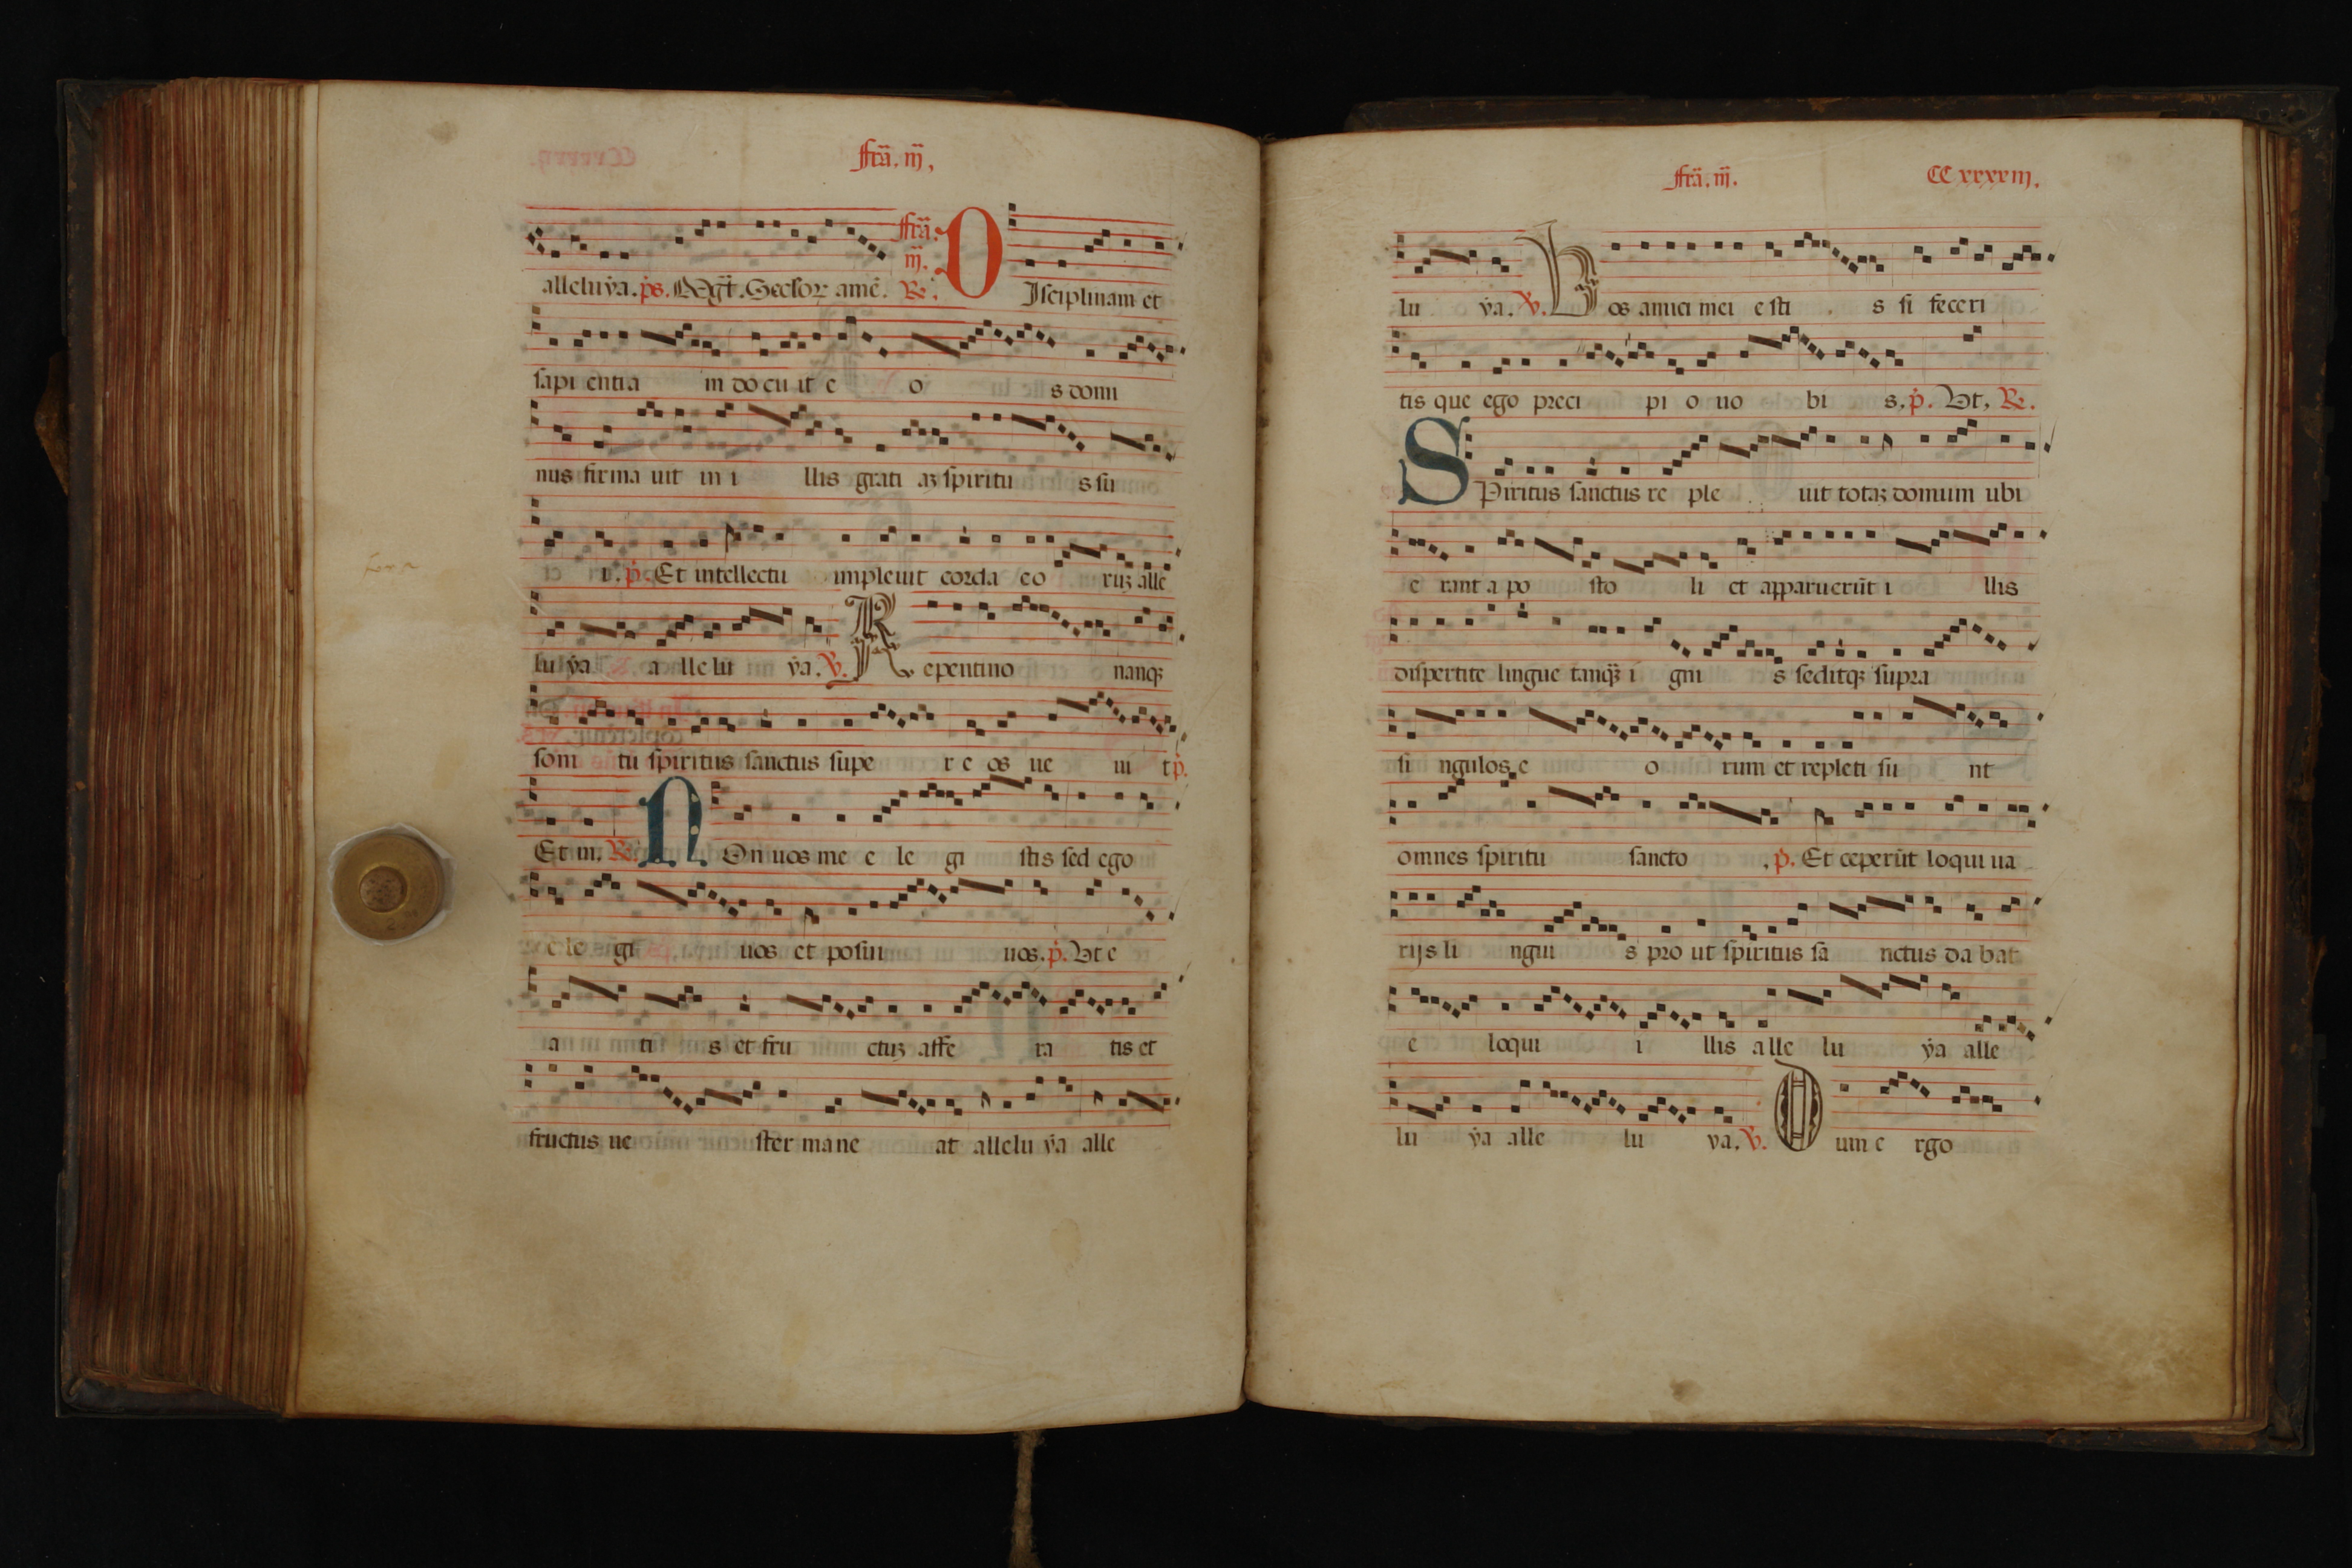 ffrã. iij,
alleluẏa. ps. Mg̃t. Seclor amẽ. ffrã. iij. Re. DIsciplinam et
sapi entia m do cu it e o s domi
nus firma uit in i llis grati aʒ spiritu s su
i. p̃. Et intellectu impleuit corda eo ruʒ alle
lu ẏa a lle lu ẏa. V. Repentino nanqʒ
soni tu spiritus sanctus supe r e os ue ni t p̃.
Et in. Re. NOn uos me e le gi stis sed ego
e le gi uos et posui uos. p̃. Vt e
a ti s et fru ctuʒ affe ra tis et
fructus ue ster ma ne at allelu ẏa alle
ffrã. iij.
CC xxxxiij.
lu ẏa. V. Vos amici mei e sti s si feceri
tis que ego preci pi o uo bi s. p̃. Vt, Re.
SPiritus sanctus re ple uit totaʒ domum ubi
e rant a po sto li et apparuerũt i llis
dispertite lingue tanqʒ̃ i gni s seditqʒ supra
si ngulos e o rum et repleti su nt
omnes spiritu sancto , p̃. Et ceperũt loqui ua
rijs li ngui s pro ut spiritus sa nctus da bat
e loqui i llis alle lu ẏa alle
lu ẏa alle lu ẏa. V. Dum e rgo